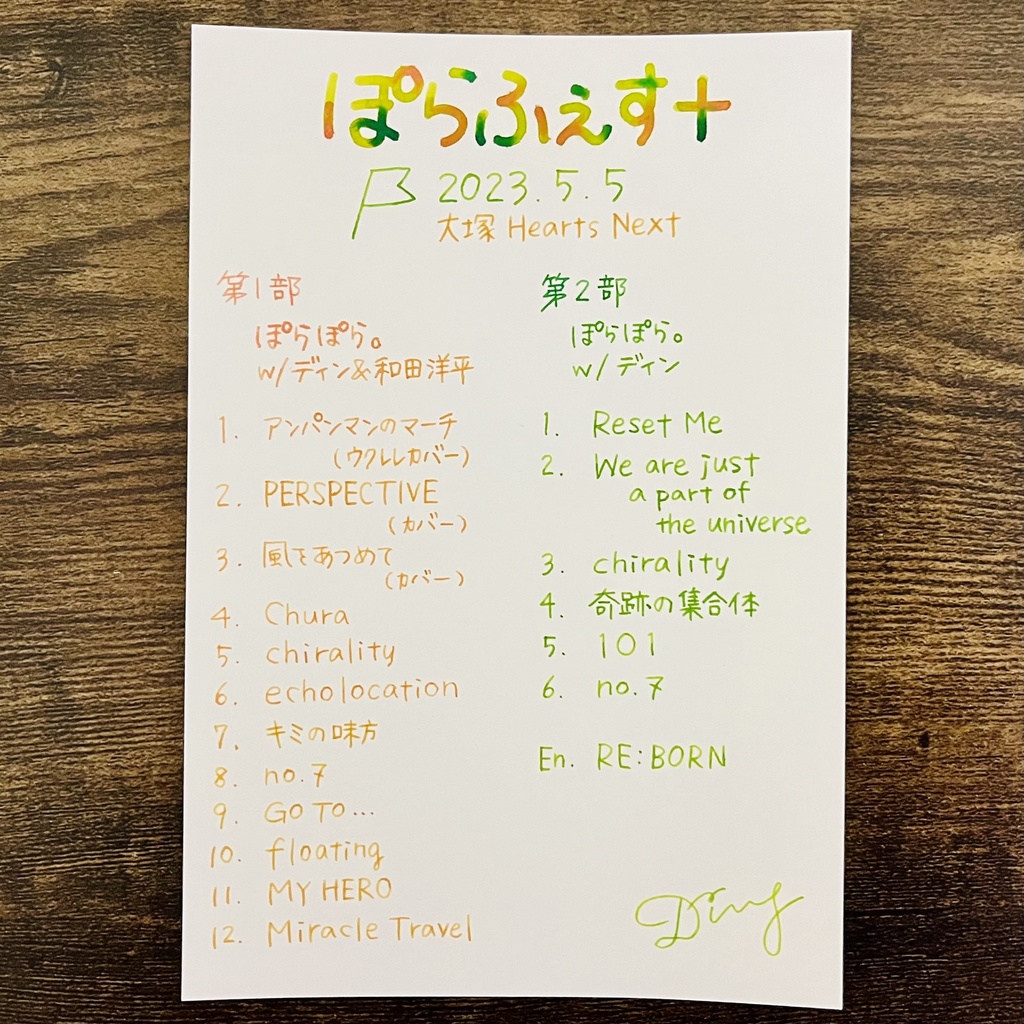 ぽらふぇす+
2023.5.5
大塚 Hearts Next
第1部
ぽらぽら。
w/ディン&和田洋平
1. アンパンマンのマーチ
(ウクレレカバー)
2. PERSPECTIVE
(カバー)
3. 風をあつめて
(カバー)
4. Chura
5. chirality
6. echolocation
7. キミの味方
8. no.7
9. GO TO…
10. floating
11. MY HERO
12. Miracle Travel
第2部
ぽらぽら。
w/ ディン
1. Reset Me
2. We are just
a part of
the universe
3. chirality
4. 奇跡の集合体
5. 101
6. no.7
En. RE:BORN
Ding